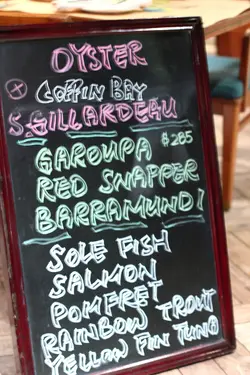 OYSTER
COFFIN BAY
S.GILLARDEAU
GAROUPA $285
RED SNAPPER
BARRAMUNDI
SOLE FISH
SALMON
POMFRET
RAINBOW TROUT
YELLOW FIN TUNA